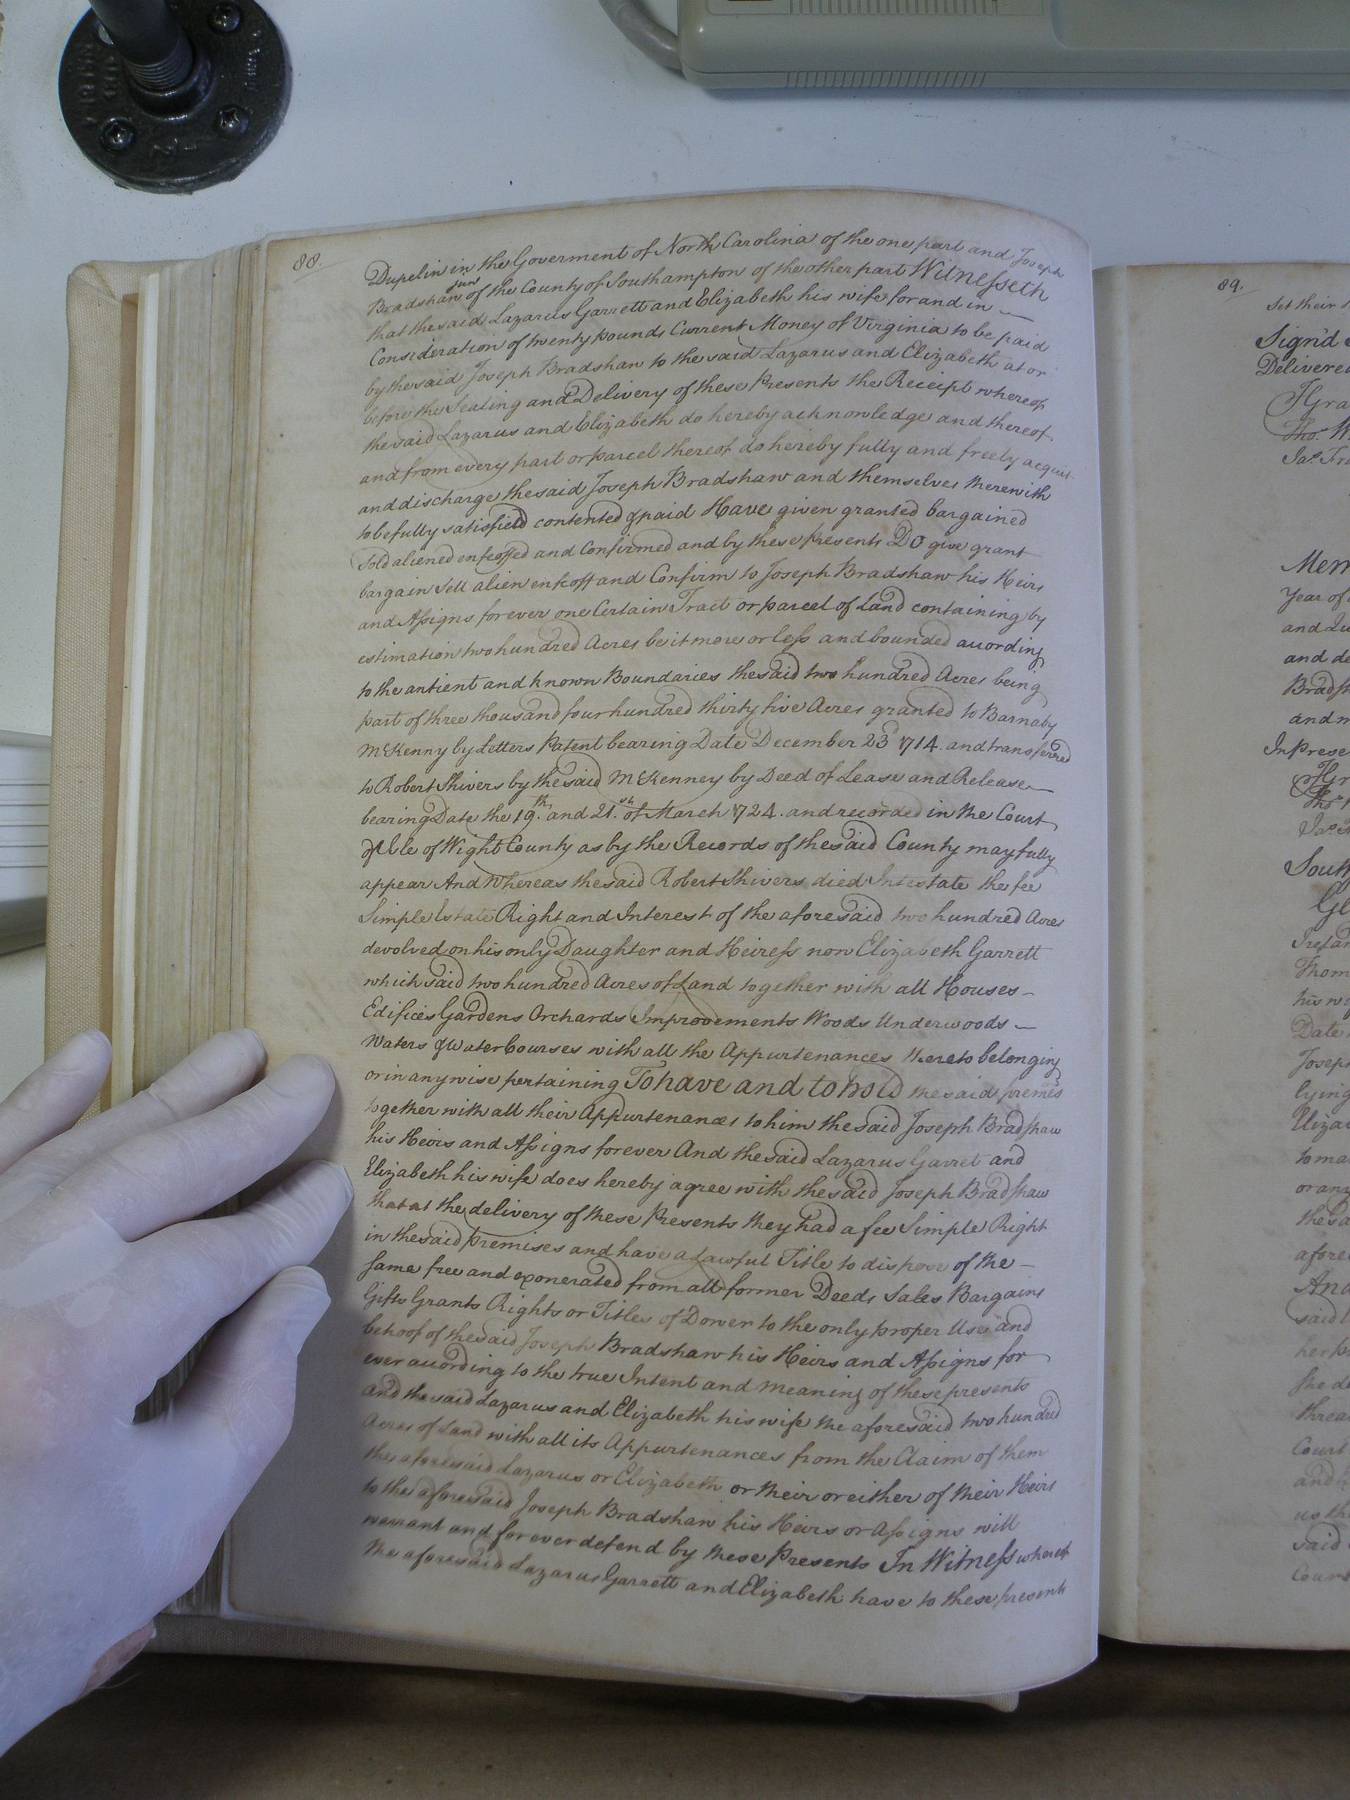 88.
Dupelin in the Goverment of North Carolina of the one part and Joseph
Bradshaw junr of the County of Southampton of the other part Witnesseth
that the said Lazarus Garrett and Elizabeth his wife for and in
Consideration of twenty pounds Current Money of Virginia to be paid
by the said Joseph Bradshaw to the said Lazarus and Elizabeth at or
before the Sealing and Delivery of these Presents the Receipt whereof
the said Lazarus and Elizabeth do hereby acknowledge and thereof
and from every part or parcel thereof do hereby fully and freely acquit
and discharge the said Joseph Bradshaw and themselves therewith
to be fully satisfied contented & paid Have given granted bargained
Sold aliened enfeoffed and Confirmed and by these presents Do give grant
bargain Sell alien enfeoff and Confirm to Joseph Bradshaw his Heirs
and Assigns forever one Certain Tract or parcel of Land containing by
estimation two hundred Acres be it more or less and bounded according
to the antient and known Boundaries the said two hundred Acres being
part of three thousand four hundred thirty five Acres granted to Barnaby
McKenny by Letters Patent bearing Date December 23d 1714. and transferred
to Robert Shivers by the said McKenney by Deed of Lease and Release
bearing Date the 19th. and 21st. of March 1724. and recorded in the Court
of Isle of Wight County as by the Records of the said County may fully
appear And Whereas the said Robert Shivers died Intestate the fee
Simple Estate Right and Interest of the aforesaid two hundred Acres
devolved on his only Daughter and Heiress now Elizabeth Garrett
which said two hundred Acres of Land together with all Houses
Edifices Gardens Orchards Improvements Woods Underwoods
Waters & Water Courses with all the Appurtenances thereto belonging
or in any wise pertaining To have and to hold the said premes
together with all their Appurtenances to him the said Joseph Bradshaw
his Heirs and Assigns forever And the said Lazarus Garret and
Elizabeth his wife does hereby agree with the said Joseph Bradshaw
that at the delivery of these Presents they had a fee Simple Right
in the said premises and have a Lawful Title to dispose of the
same free and exonerated from all former Deeds Sales Bargains
Gifts Grants Rights or Titles of Dower to the only proper Use and
behoof of the said Joseph Bradshaw his Heirs and Assigns for
ever according to the true Intent and meaning of these presents
and the said Lazarus and Elizabeth his wife the aforesaid two hundred
Acres of Land with all its Appurtenances from the Claim of them
the aforesaid Lazarus or Elizabeth or their or either of their Heirs
to the aforesaid Joseph Bradshaw his Heirs or Assigns will
warrant and forever defend by these Presents In Witness whereof
the aforesaid Lazarus Garrett and Elizabeth have to these presents
89.
Set their
Sign'd
Delivered
Tho. W
Jas. Fra
Mem
Year of
and
and de
Brads
and
In prese
South
his
Date
Joseph
lying
Eliza
to ma
or any
the sa
afore
And
said
her p
she de
threa
Court
and
us th
said